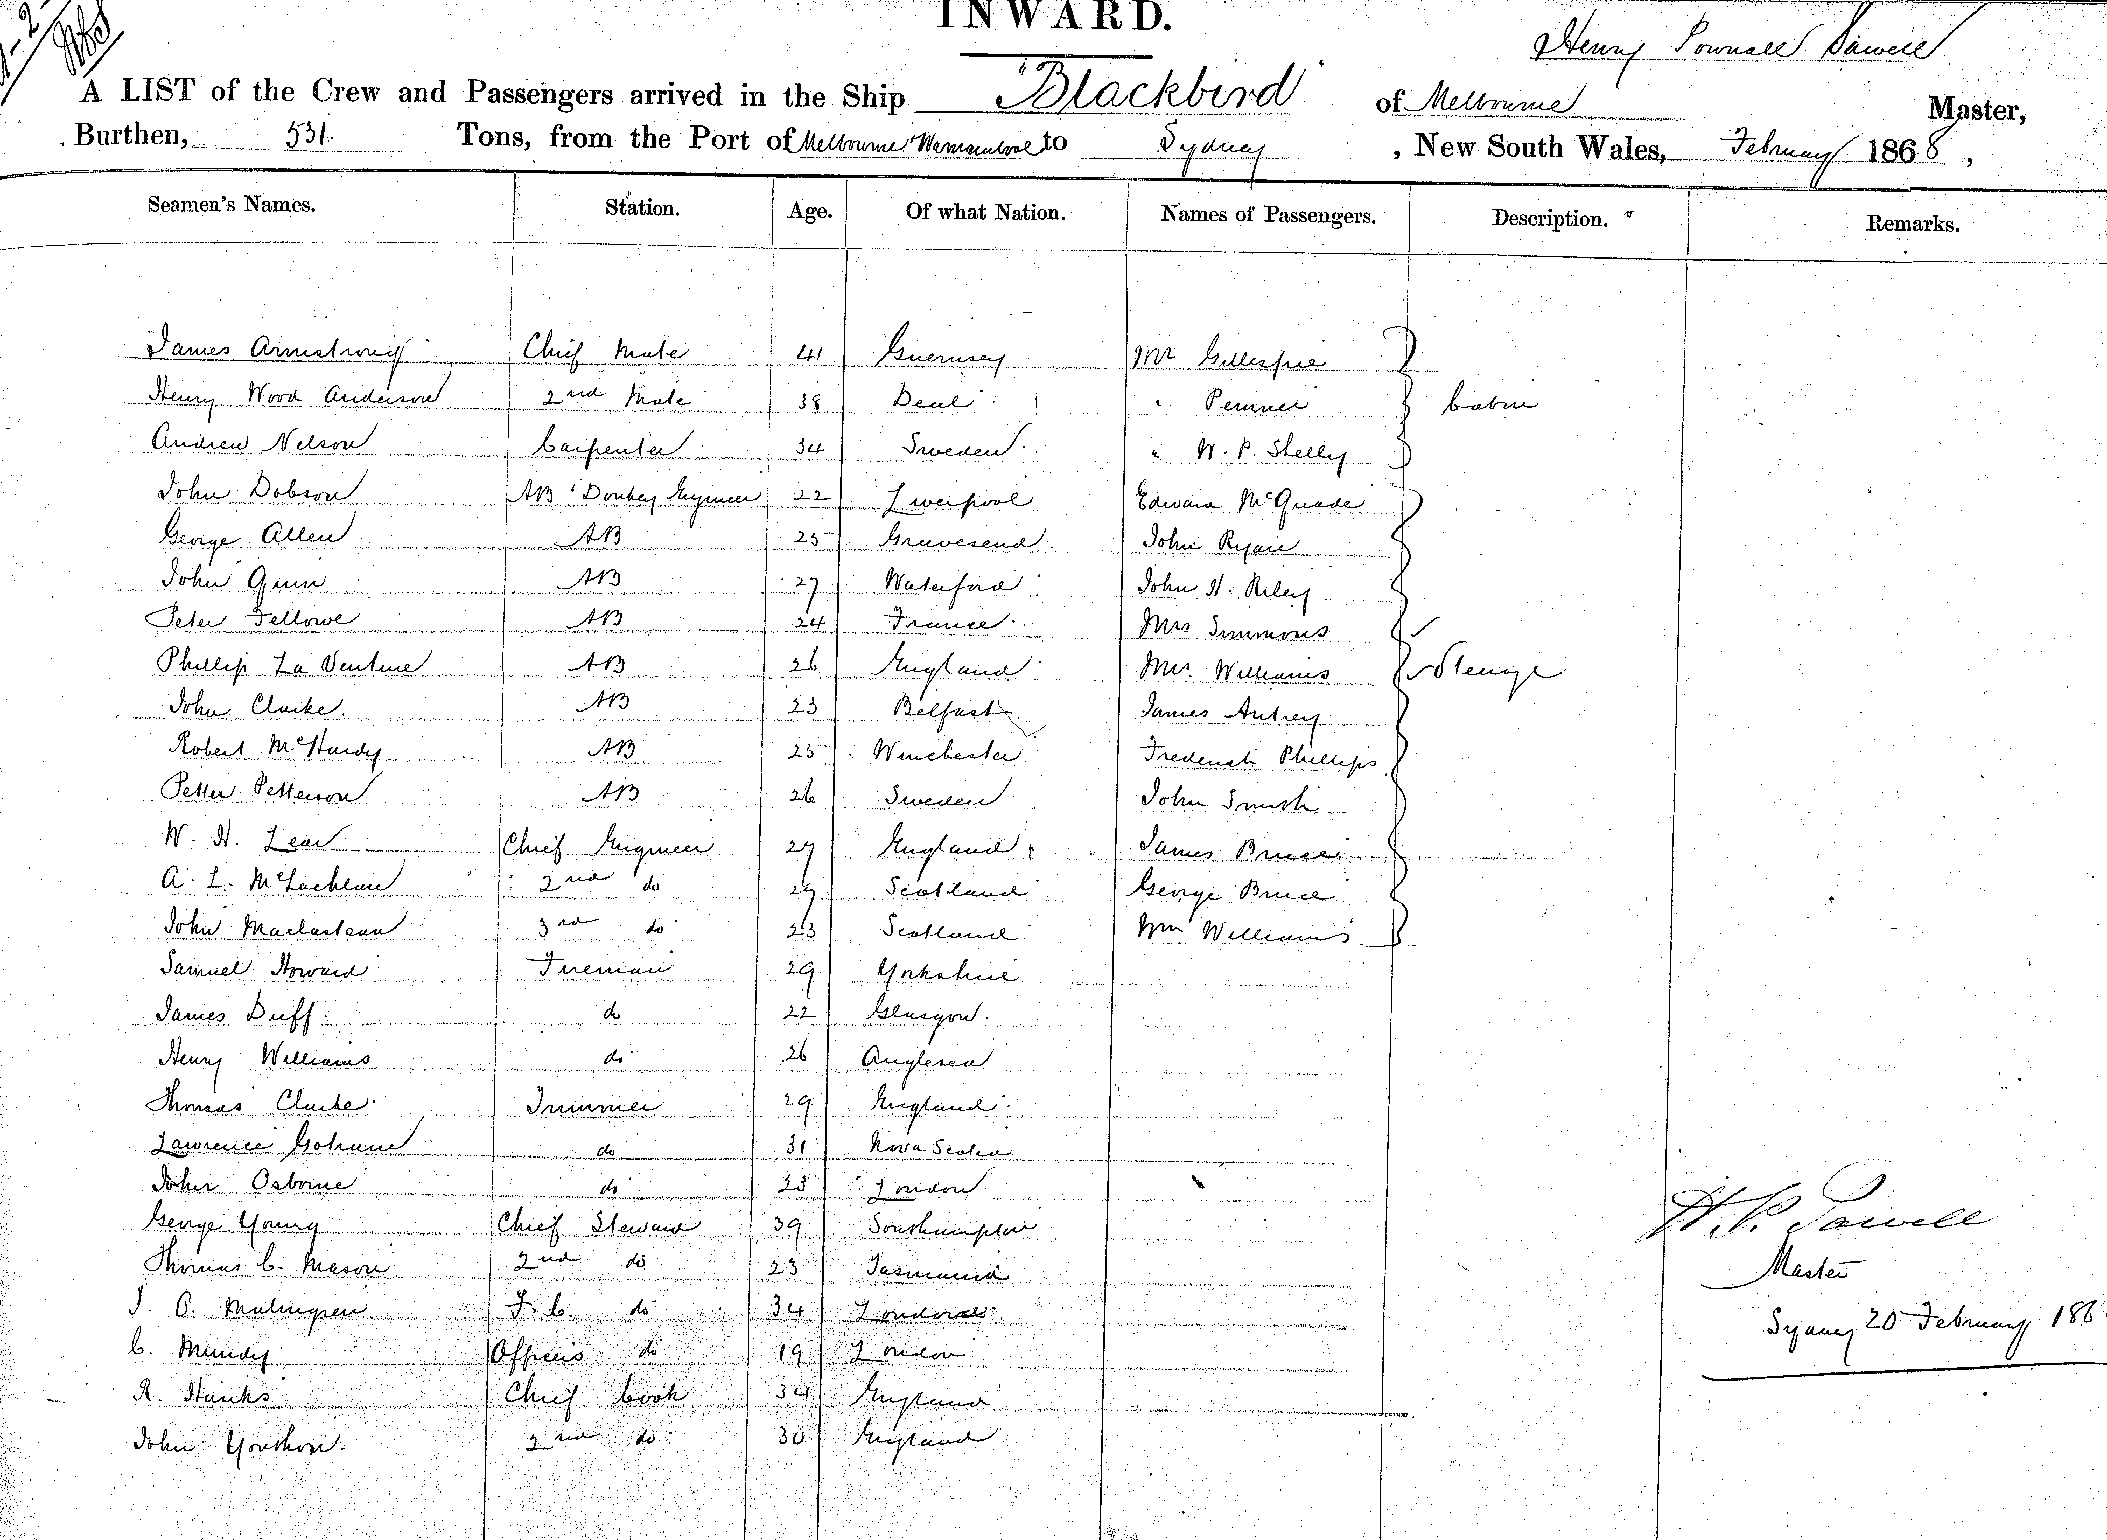 INWARD.
Henry Pownall
A LIST of the Crew and Passengers arrived in the Ship "Blackbird" of Melbourne Master,
Burthen, 531 Tons, from the Port of Melbourne Warrnambool to Sydney, New South Wales, February 1868,
Seamen's Names. Station. Age. Of what Nation. Names of Passengers. Description. Remarks.
James Armstrong Chief Mate 41 Guernsey Mr Gillespie
Henry Wood Anderson 2nd Mate 38 Deal " Cabin
Andrew Nelson Carpenter 34 Sweden " W. P. Shelly
John Dobson AB & Donkey Engineer 22 Liverpool Edward McQuade
George Allen AB 25 Gravesend John Ryan
John Quin AB 27 Waterford John H. Riley
Peter Fellowe AB 24 France Mrs Simmons
Phillip La Venture AB 26 England Mrs. Williams Steerage
John Clarke. AB 23 Belfast James Autrey
Robert McHardy AB 25 Winchester Frederick Phillips
Petter Petterson AB 26 Sweden John Smith
W. H. Lear Chief Engineer 27 England James Bruce
A. L. McLachlan 2nd do 29 Scotland George Bruce
John 3rd do 23 Scotland Wm Williams
Samuel Howard Fireman 29 Yorkshire
James Duff do 22 Glasgow.
Henry Williams do 26 Anglesea
Thomas Clarke Trimmer 29 England
Lawrence do 31 Nova Scotia
John Osborne do 23 London
George Young Chief Steward 39 Southampton
Thomas C. Mason 2nd do 23 Tasmania
J. F. C. do 34
C. Mundy Officers do 19 London
R. Hanks Chief Cook 34 England
John 2nd do 30 England
H. P.
Master
Sydney 20 February 186